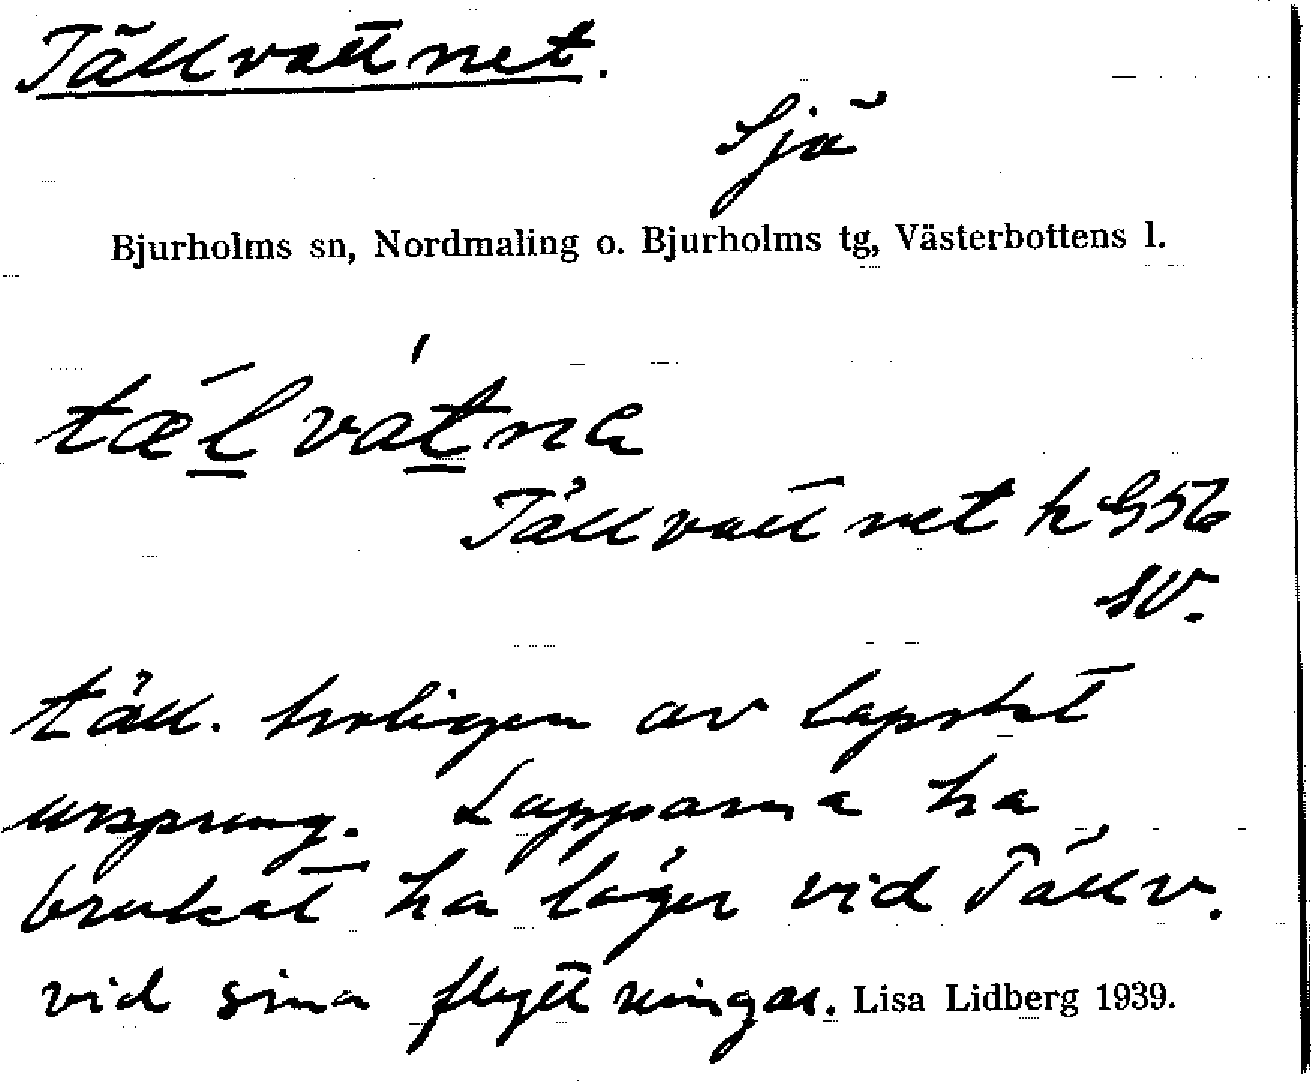 Tällvattnet.
Sjö
Bjurholms sn, Nordmaling o. Bjurholms tg, Västerbottens l.
tælvatna
Tällvattnet k G56
SV.
täll. troligen av lapskt
ursprung. Lapparna ha
brukat ha läger vid Tällv.
vid sina flyttningar. Lisa Lidberg 1939.